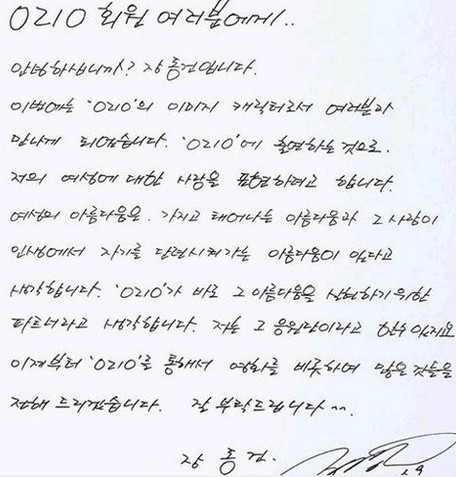 0210 회원 여러분에게..
안녕하십니까? 장 동건입니다.
이번에는 '0210'의 이미지 캐릭터로서 여러분과
만나게 되었습니다. '0210'에 출연하는 것으로.
저의 여성에 대한 사랑을 표현하려고 합니다.
여성의 아름다움은. 가지고 태어나는 아름다움과 그 사람이
인생에서 자기를 단련시켜가는 아름다움이 있다고
생각합니다. '0210'가 바로 그 아름다움을 실현하기 위한
파트너라고 생각합니다. 저는 그 응원단이라고 할수 있지요
이제부터 '0210'를 통해서 영화를 비롯하여 많은 것들을
전해 드리겠습니다. 잘 부탁드립니다 ^^.
장 동 건.